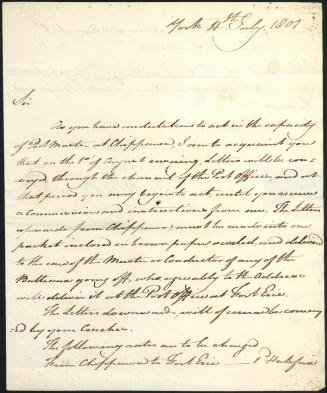 York 4th July 1801
Sir
As you have undertaken to act in the capacity
of Post Master at Chippewa, I am to acquaint you
that on the 1st of August ensuing, Letters will be con-
veyed through the channel of the Post Office, and at
that period you may begin to act until you receive
a Commission and instructions from me. The Letters
upwards from Chippewa must be made into one
packet inclosed in brown paper sealed and delivered
to the care of the Master or Conductor of any of the
Batteaux going off, who agreeably to the Address
will deliver it at the Post Office at Fort Erie.
The Letters downward, will of course be convey
ed by your Coaches.
The following rates are to be charged
From Chippewa to Fort Erie